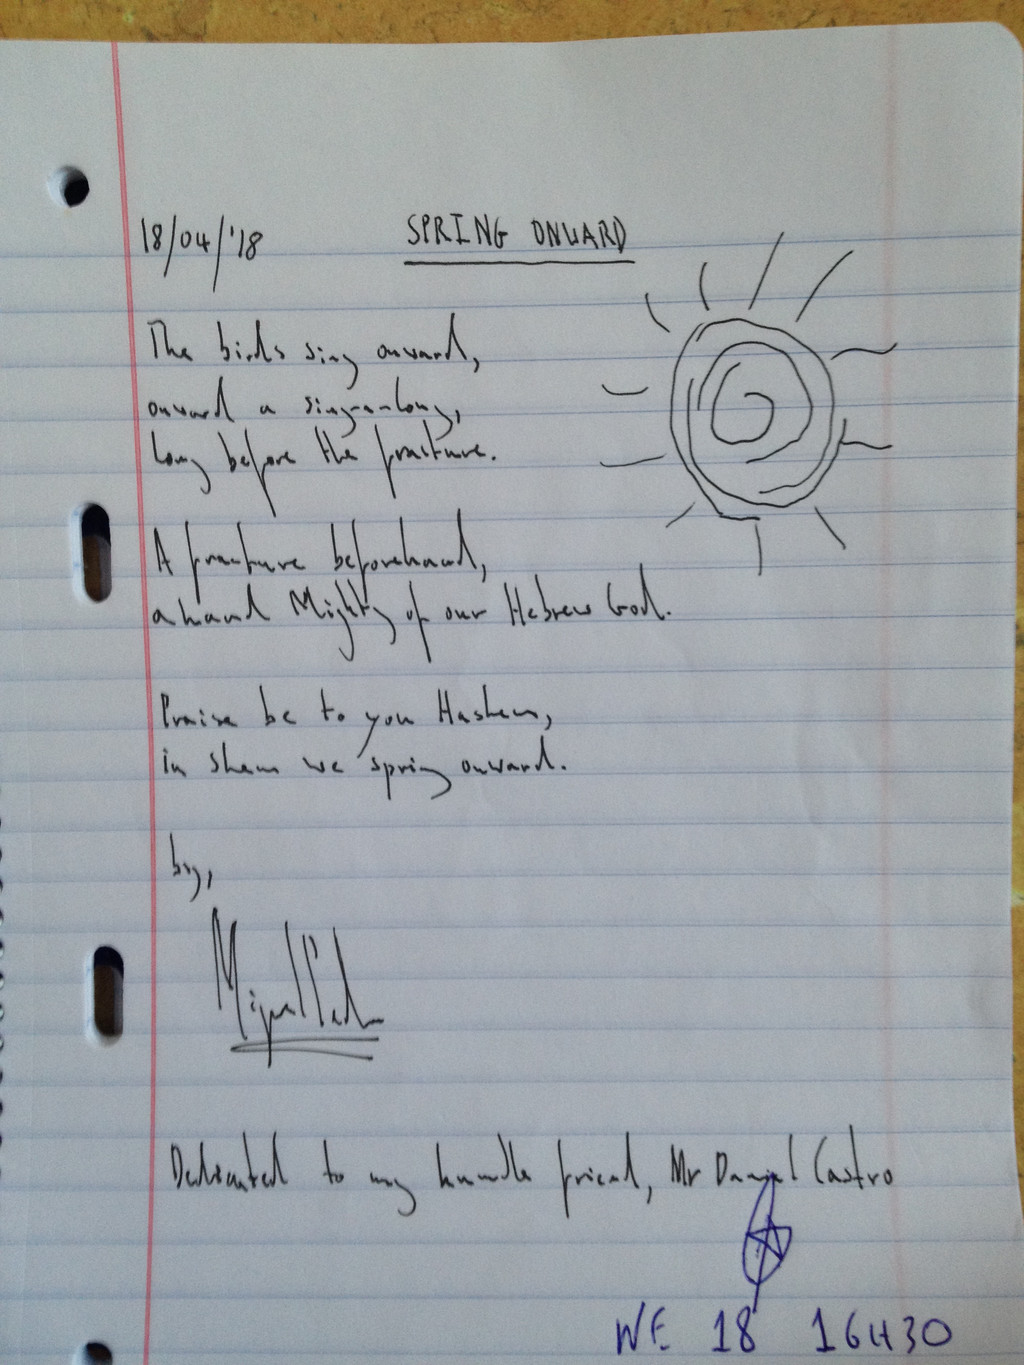 18/04/'18 SPRING ONWARD
The birds sing onward,
onward a sing-a-long,
long before the fracture.
A fracture beforehand,
a hand Mighty of our Hebrew God.
Praise be to you Hashem,
in shem we spring onward.
by,
Miguel
Dedicated to my humble friend, Mr Daniel Castro
WE 18 16H30